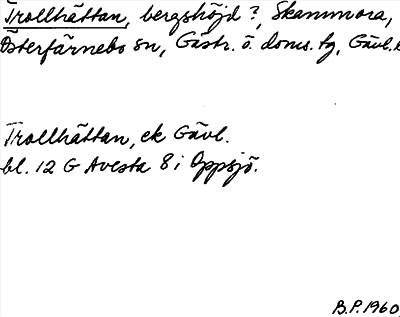 Trollhättan, bergshöjd?, Skammora,
Österfärnebo sn, Gästr. ö. doms. tg, Gävl.
Trollhättan, ek Gävl.
bl. 12 G Avesta 8 i Oppsjö.
B.P. 1960